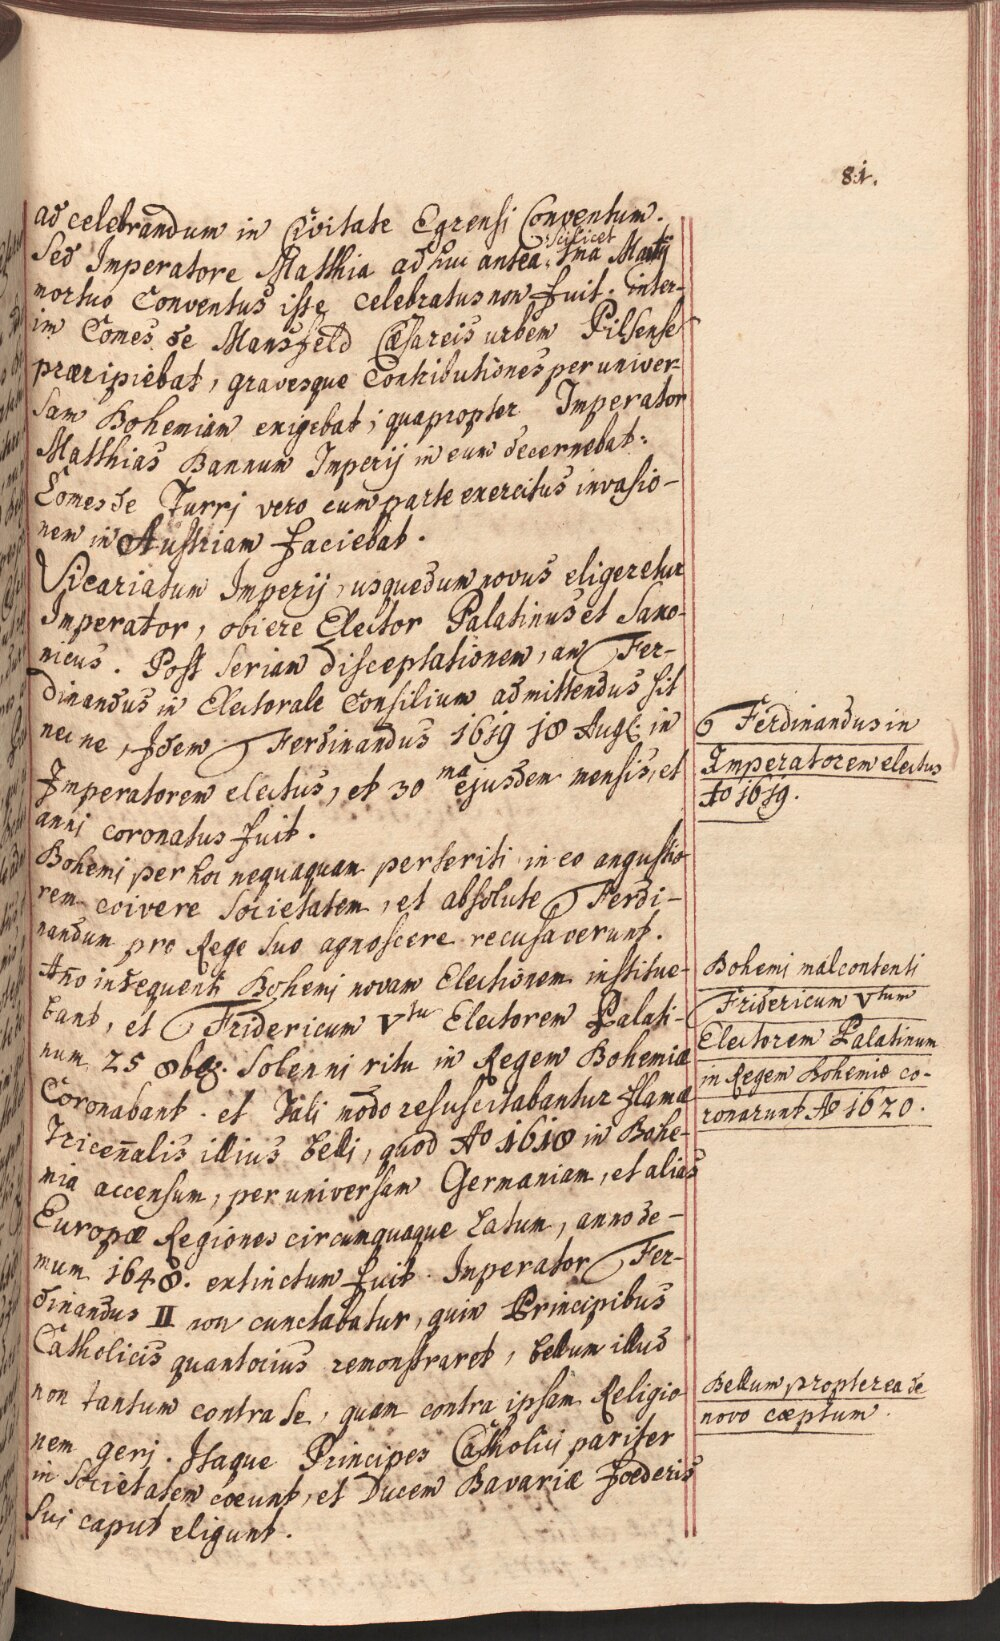 81.
ad celebrandum in Civitate Egrensi Conventum.
scilicet
Sed Imperatore Matthia adhuc antea, 1ma Martij
mortuo Conventus iste celebratus non fuit. inter-
im Comes de Mansfeld Cæsareis urbem Pilsense
præripiebat, gravesque Contributiones per univer-
sam Bohemiam exigebat; quapropter Imperator
Matthias Bannum Imperij in eum decernebat:
Comes de Turrj vero cum parte exercitus invasio-
nem in Austriam faciebat.
Vicariatum Imperij, usquedum novus eligeretur
Imperator, obiere Elector Palatinus et Saxo-
nicus. Post seriam disceptationem, an Fer-
dinandus in Electorale Consilium admittendus sit
nec ne, Idem Ferdinandus 1619 18 Augs. in
Imperatorem electus, et 30 ma ejusdem mensis, et
anni coronatus fuit.
Bohemi per hoc nequaquam perteriti in eo angustio
rem coivere societatem, et absolute Ferdi-
nandum pro Rege suo agnoscere recusaverunt.
Año insequenti Bohemi novam Electionem institue-
bant, et Fridericum Vtu Electorem Palati-
num 25 8bg. solenni ritu in Regem Bohemiæ
Coronabant. et Tali modo resuscitabantur flamæ
Tricen̄alis illius belli, quod Ao 1618 in Bohe-
mia accensum, per universam Germaniam, et alias
Europæ Regiones circumquaque latum, anno de-
mum 1648. extinctum fuit. Inperator Fer-
dinandus II non cunctabatur, quin Principibus
Catholicis quantocius remonstraret, bellum illud
non tantum contra se, quam contra ipsam Religio
nem gerj. Itaque Principes Catholici pariter
in societatem coeunt, et Ducem Bavariæ foederis
sui caput eligunt.
Ferdinandus in
Imperatorem electus
Ao 1619.
Bohemi malcontenti
Fridericum Vtum
Electorem Palatinum
in Regem Bohemiæ co-
ronarunt Ao 1620.
Bellum propterea de
novo cæptum.